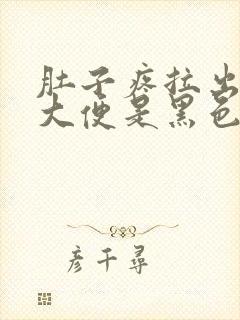 肚子疼拉出
大便是黑色
彦千寻